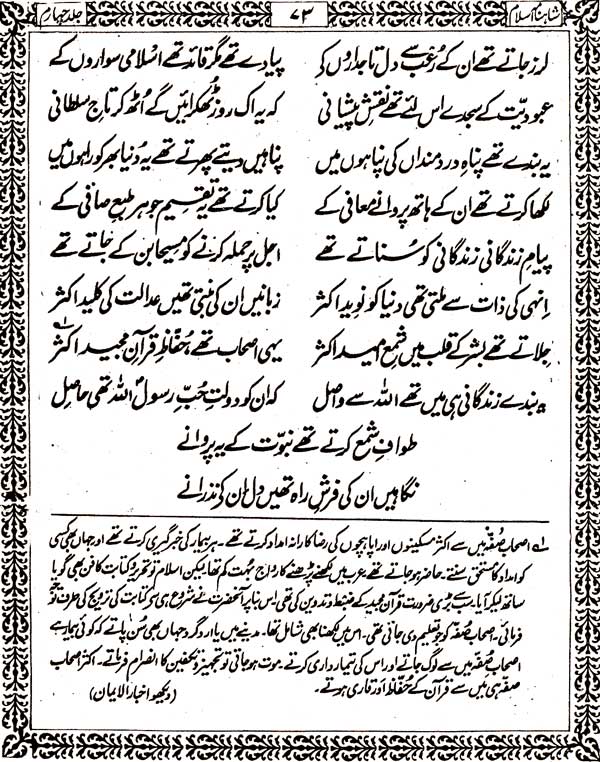 شاہنامہ اسلام ۷۳ جلد چہارم
لرز جاتے تھے ان کے رُعب سے دل تاجداروں کے پیادے تھے مگر قائد تھے اسلامی سواروں کے
عبودیّت کے سجدے اس لئے تھے نقشِ پیشانی کہ یہ اک روز ٹھکرائیں گے اُٹھ کر تاجِ سلطانی
یہ بندے تھے پناہِ دردمنداں کی پناہوں میں پناہیں دیتے پھرتے تھے یہ دُنیا بھر کو راہوں میں
لکھا کرتے تھے ان کے ہاتھ پروانے معافی کے کیا کرتے تھے یہ تقسیم جوہر طبعِ صافی کے
پیامِ زندگانی زندگانی کو سُناتے تھے اجل پر حملہ کرنے کو مسیحا بن کے جاتے تھے
اِنہی کی ذات سے ملتی تھی دنیا کو نوید اکثر زبانیں ان کی بنتی تھیں عدالت کی کلید اکثر
جلاتے تھے بشر کے قلب میں شمعِ امید اکثر یہی اصحاب تھے، حُفّاظِ قرآنِ مجید اکثر ؂۱
یہ بندے زندگانی ہی میں تھے اللہ سے واصل کہ ان کو دولتِ حُبِّ رسول اللہ تھی حاصل
طوافِ شمع کرتے تھے نبوّت کے یہ پروانے
نگاہیں ان کی فرشِ راہ تھیں دل ان کی نذرانے
؂۱ اصحابِ صُفّہ میں سے اکثر مسکینوں اور اپاہجوں کی رضاکارانہ امداد کرتے تھے۔ ہر بیمار کی خبرگیری کرتے تھے اور جہاں بھی کسی
کو امداد کا مستحق سنتے۔ حاضر ہو جاتے تھے عرب میں لکھنے پڑھنے کا رواج بہت کم تھا لیکن اسلام تو تحریر و کتابت کا فن بھی گویا
ساتھ لیکر آیا۔ سب سے بڑی ضرورت قرآن مجید کے ضبط و تدوین کی تھی۔ اس بنا پر آنحضرت نے شروع ہی سے کتابت کی ترویج کی طرف توجہ
فرمائی۔ اصحابِ صُفّہ کو جو تعلیم دی جاتی تھی۔ اس میں لکھنا بھی شامل تھا۔ مدینے میں یا اردگرد جہاں بھی سُن پاتے کہ کوئی بیمار ہے
اصحابِ صُفّہ میں سے لوگ جاتے اور اس کی تیمارداری کرتے۔ موت ہو جاتی تو تجہیز و تکفین کا انصرام فرماتے۔ اکثر اصحاب
صفہ ہی میں سے قرآن کے حُفّاظ اور قاری ہوتے۔ (دیکھو اخبار الایمان)